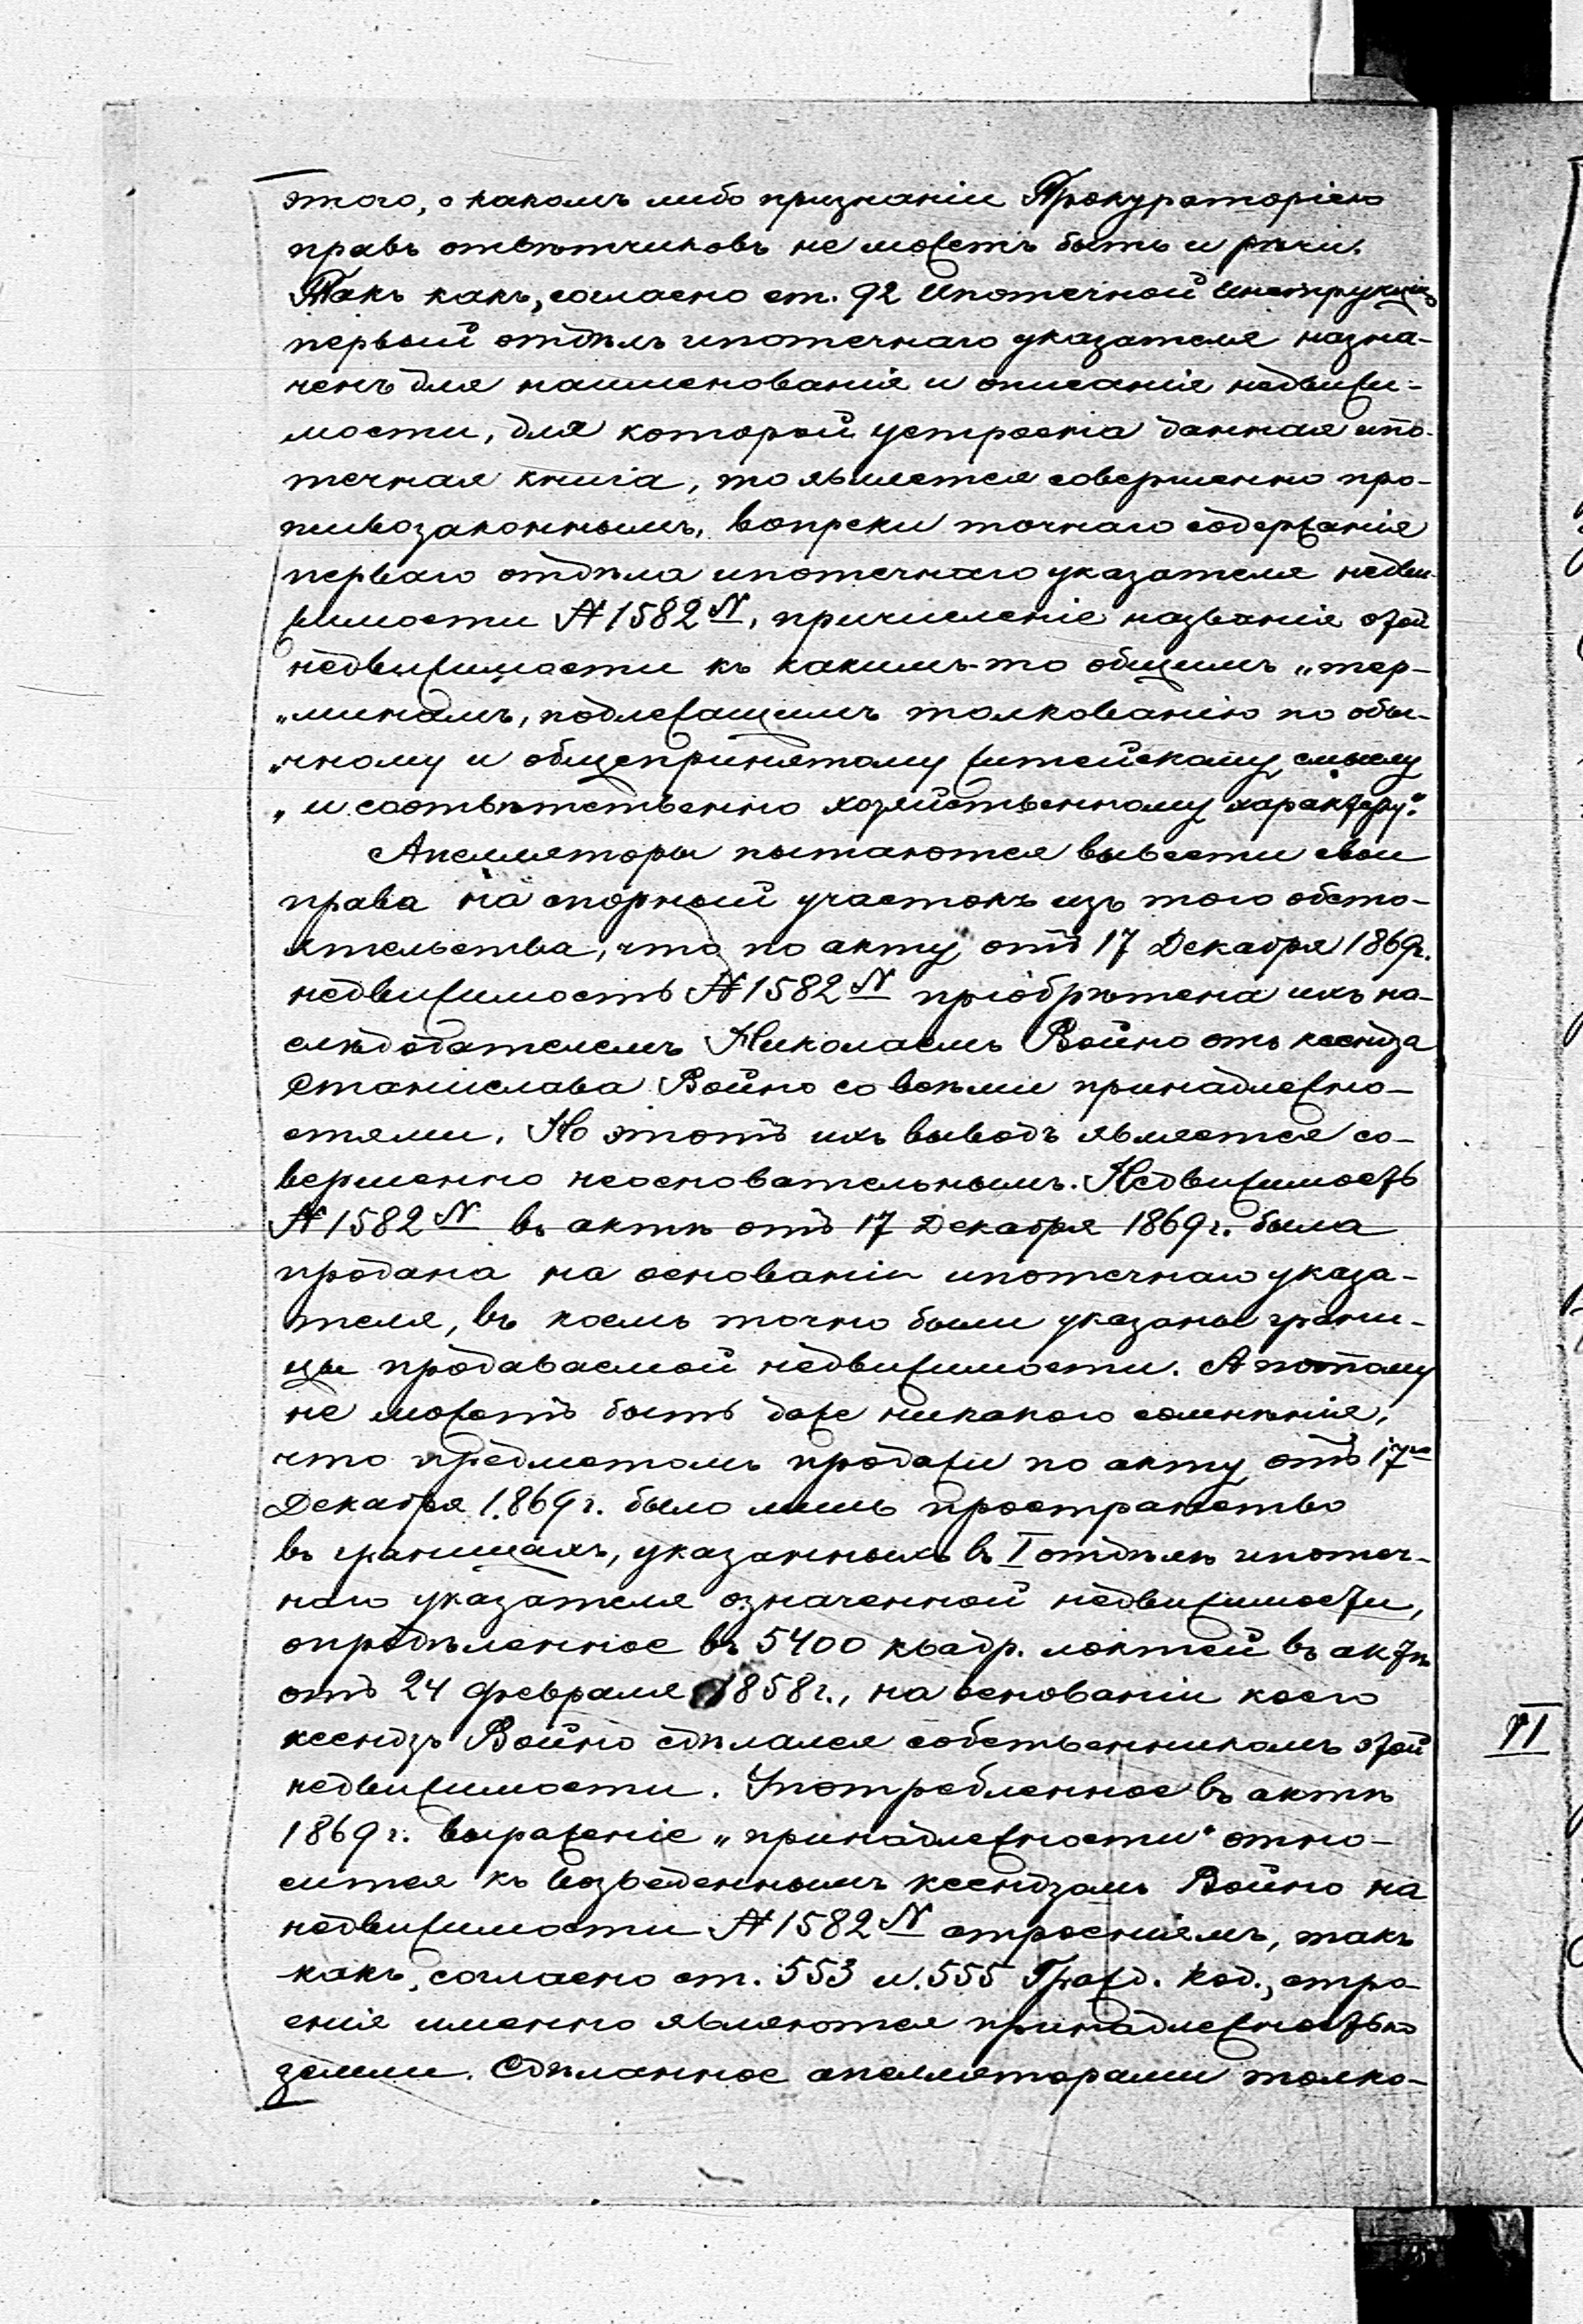 этого, о какомъ либо признаніи Прокураторіею
правъ отвѣтчиковъ не можетъ быть и рѣчи.
Такъ какъ, согласно ст. 92 Ипотечной Инструкціи,
первый отдѣлъ ипотечнаго указателя назна-
ченъ для наименованія и описанія недвижи-
мости, для которой устроена данная ипо-
течная книга, то является совершенно про-
тивозаконнымъ, вопреки точнаго содержанія
перваго отдѣла ипотечнаго указателя недви-
жимости № 1582 N, причисленіе названія этой
недвижимости къ какимъ-то общимъ „тер-
„минамъ, подлежащимъ толкованію по обы-
„чному и общепринятому житейскому смыслу
„и соотвѣтственно хозяйственному характеру“.
Апелляторы пытаются вывести свои
права на спорный участокъ изъ того обсто-
ятельства, что по акту отъ 17 Декабря 1869 г.
недвижимость № 1582 N пріобрѣтена ихъ на-
слѣдодателемъ Николаемъ Войно отъ ксендза
Станислава Войно со всѣми принадлежно-
стями. Но этотъ ихъ выводъ является со-
вершенно неосновательнымъ. Недвижимость
№ 1582 N въ актѣ отъ 17 Декабря 1869 г. была
продана на основаніи ипотечнаго указа-
теля, въ коемъ точно были указаны грани-
цы продаваемой недвижимости. А потому
не можетъ быть даже никакого сомнѣнія,
что предметомъ продажи по акту отъ 17го
Декабря 1869 г. было лишь пространство
въ границахъ, указанныхъ въ I отдѣлѣ ипотеч-
наго указателя означенной недвижимости,
опредѣленное въ 5400 квадр. локтей въ актѣ
отъ 24 Февраля 1858 г., на основаніи коего
ксендзъ Войно сдѣлался собственникомъ этой
недвижимости. Употребленное въ актѣ
1869 г. выраженіе „принадлежности“ отно-
сится къ возведеннымъ ксендзомъ Войно на
недвижимости № 1582 N строеніямъ, такъ
какъ, согласно ст. 553 и 555 Гражд. Код., стро-
енія именно являются принадлежностью
земли. Сдѣланное апелляторами толко-
VI